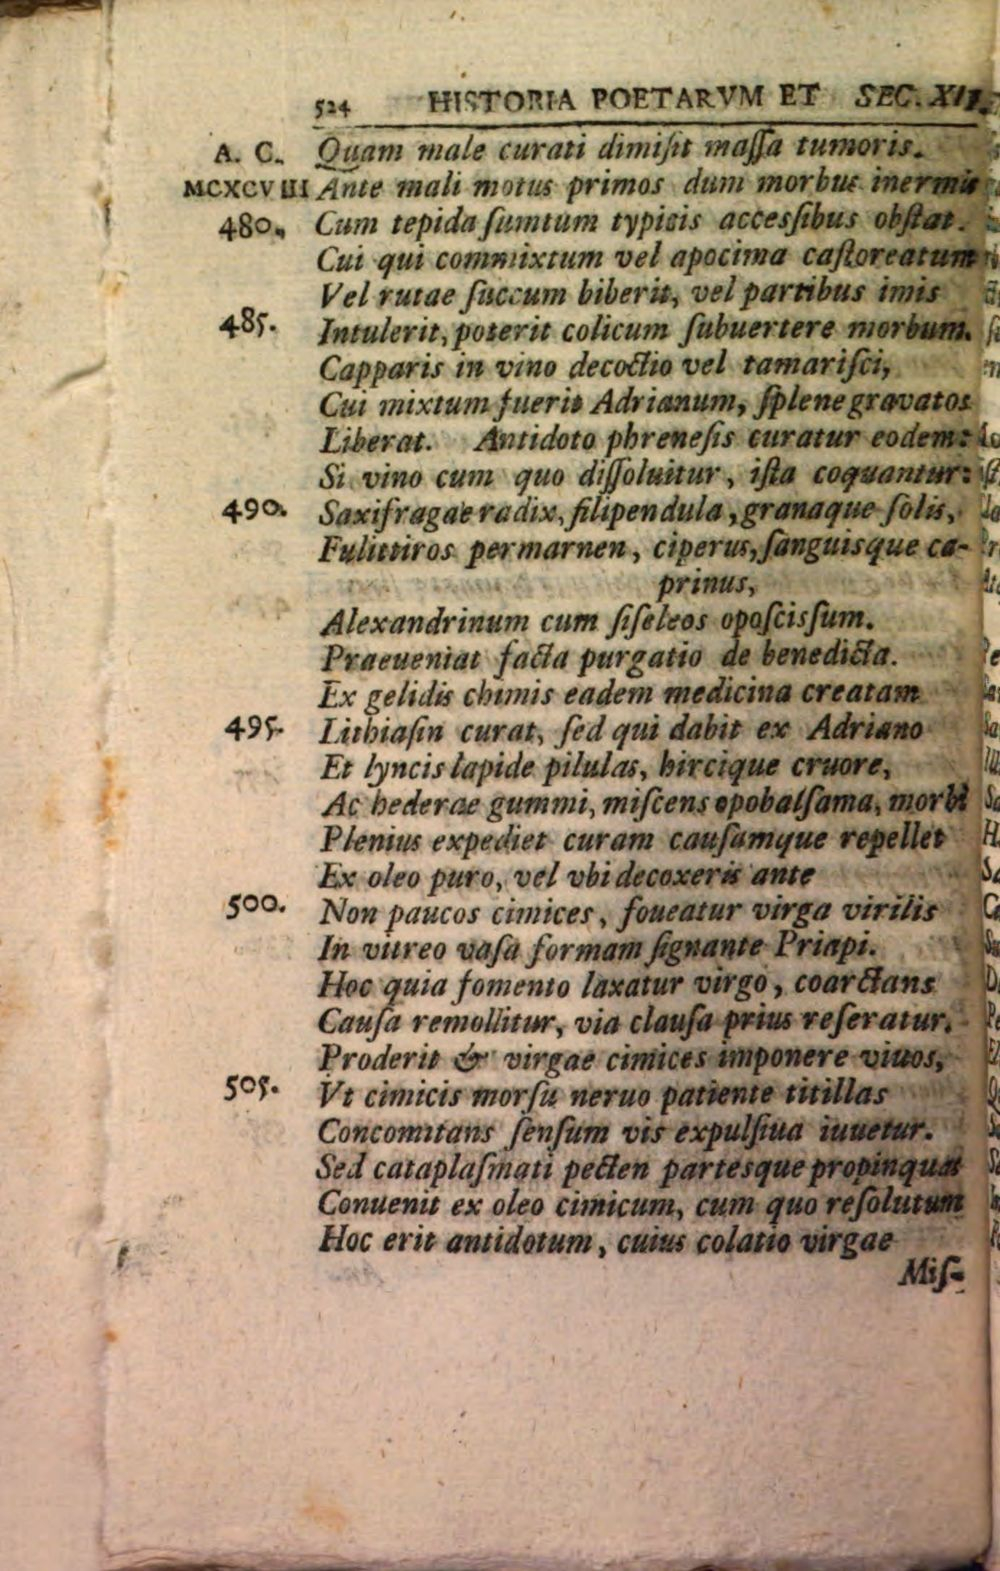 524 HISTORIA POETARVM ET SEC. XII.
A. C. Quam male curati dimiſit maſſa tumoris.
MCXCVIII Ante mali motus primos dum morbus inermis
480. Cum tepida ſumtum typicis accesſibus obſtat.
Cui qui commixtum vel apocima caſtoreatum
Vel rutae ſuccum biberit, vel partibus imis
485. Intulerit, poterit colicum ſubuertere morbum.
Capparis in vino decoctio vel tamariſci,
Cui mixtum fuerit Adrianum, ſplene gravatos
Liberat. Antidoto phreneſis curatur eodem:
Si vino cum quo diſſoluitur, iſta coquantur:
490. Saxifragae radix, filipendula, granaque ſolis,
Fulittiros permarnen, ciperus, ſanguisque ca-
prinus,
Alexandrinum cum ſiſeleos opoſcisſum.
Praeueniat facta purgatio de benedicta.
Ex gelidis chimis eadem medicina creatam
495. Lithiaſin curat, ſed qui dabit ex Adriano
Et lyncis lapide pilulas, hircique cruore,
Ac hederae gummi, miſcens opobalſama, morbi
Plenius expediet curam cauſamque repellet
Ex oleo puro, vel vbi decoxeris ante
500. Non paucos cimices, foueatur virga virilis
In vitreo vaſa formam ſignante Priapi.
Hoc quia fomento laxatur virgo, coarctans
Cauſa remollitur, via clauſa prius reſeratur.
Proderit & virgae cimices imponere viuos,
505. Vt cimicis morſu neruo patiente titillas
Concomitans ſenſum vis expulſiua iuuetur.
Sed cataplaſmati pecten partesque propinquas
Conuenit ex oleo cimicum, cum quo reſolutum
Hoc erit antidotum, cuius colatio virgae
Miſ-